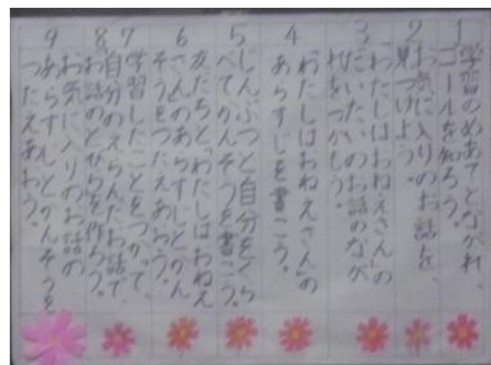 1
学習のめあてとながれ、
ゴールを知ろう。
2
お気に入りのお話を、
見つけよう。
3
「わたしはおねえさん」の
だいたいのお話のなが
れをつかもう。
4
「わたしはおねえさん」の
あらすじを書こう。
5
じんぶつと自分をくら
べてかんそうを書こう。
6
友だちと、わたしはおねえ
さんのあらすじとかん
そうをつたえあおう。
7
学習したことをつかって、
自分のえらんだお話で、
8
お話のとびらを作ろう。
9
お気に入りのお話の
あらすじとかんそうを
つたえあおう。